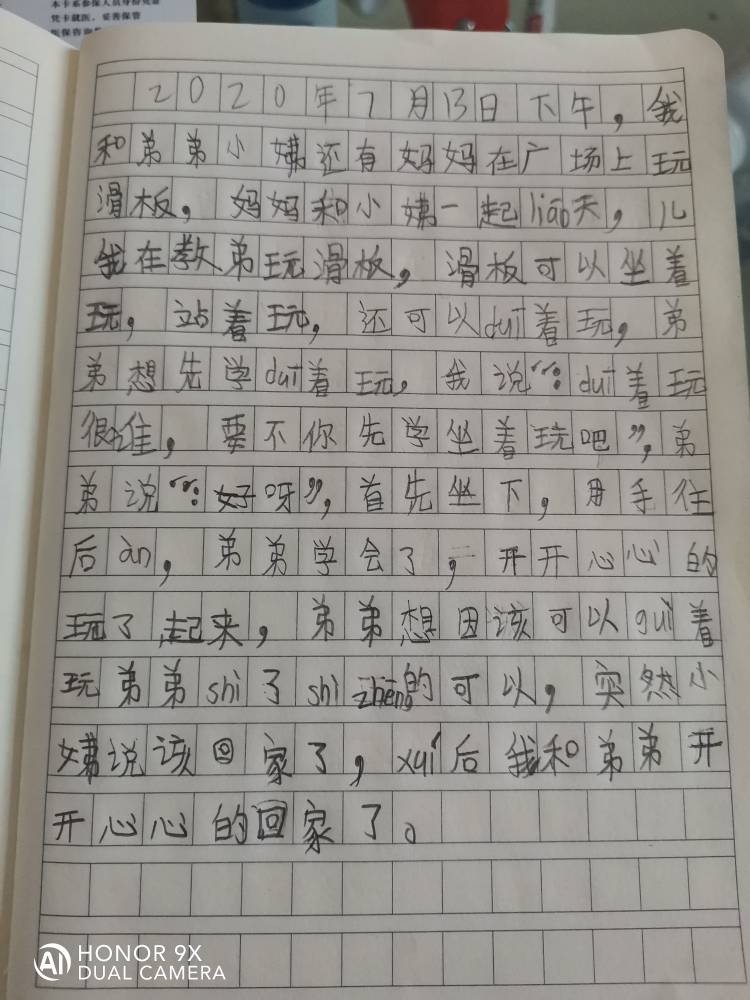 本卡系参保人员身份凭证
凭卡就医，妥善保管
2020年7月13日下午，我
和弟弟小姨还有妈妈在广场上玩
滑板，妈妈和小姨一起liáo天，儿
我在教弟玩滑板，滑板可以坐着
玩，站着玩，还可以duī着玩，弟
弟想先学duī着玩，我说“：duī着玩
很难，要不你先学坐着玩吧”，弟
弟说“：好呀”，首先坐下，用手往
后àn，弟弟学会了，开开心心的
玩了起来，弟弟想因该可以guì着
玩弟弟shì了shì zhēng的可以，突然小
姨说该回家了，xuí后我和弟弟开
开心心的回家了。
HONOR 9X
DUAL CAMERA